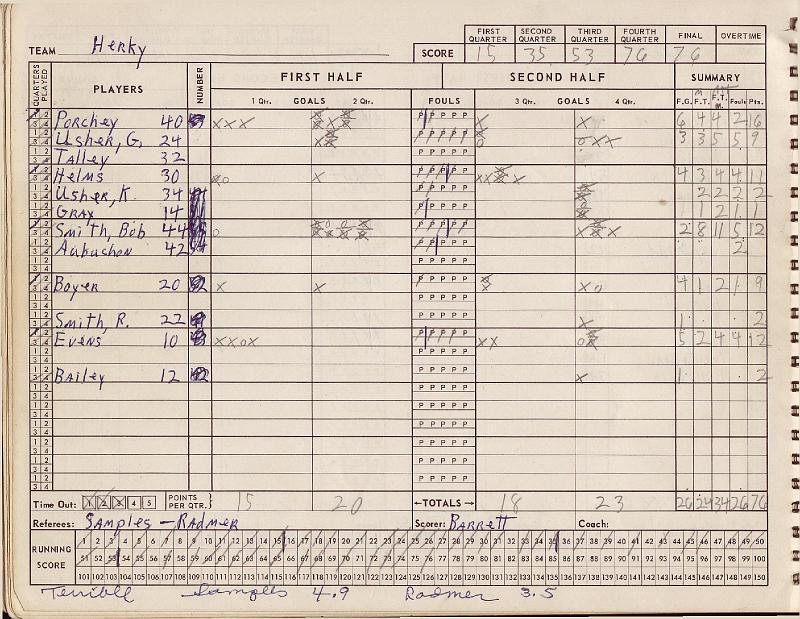 TEAM Herky
SCORE
FIRST QUARTER SECOND QUARTER THIRD QUARTER FOURTH QUARTER FINAL OVERTIME
15 35 53 76 76
QUARTERS PLAYED PLAYERS NUMBER FIRST HALF SECOND HALF SUMMARY
1 Qtr. GOALS 2 Qtr. FOULS 3 Qtr. GOALS 4 Qtr. F.G. F.T. F.T. Fouls Pts.
Porchey 40 6 4 4 2 16
Usher, G. 24 3 3 5 5 9
Talley 32
Helms 30 4 3 4 4 11
Usher, K. 34 2 2 2 2
Gray 14 1 2 1 1
Smith, Bob 44 2 8 11 5 12
Aubuchon 42 2
Boyer 20 4 1 2 1 9
Smith, R. 22 1 2
Evens 10 5 2 4 4 12
Bailey 12 1 2
Time Out: 1 2 3 4 5 POINTS PER QTR. 15 20 ←TOTALS→ 18 23 26 24 34 26 76
Referees: Samples - Radmer Scorer: Barrett Coach:
RUNNING SCORE
1 2 3 4 5 6 7 8 9 10 11 12 13 14 15 16 17 18 19 20 21 22 23 24 25 26 27 28 29 30 31 32 33 34 35 36 37 38 39 40 41 42 43 44 45 46 47 48 49 50
51 52 53 54 55 56 57 58 59 60 61 62 63 64 65 66 67 68 69 70 71 72 73 74 75 76 77 78 79 80 81 82 83 84 85 86 87 88 89 90 91 92 93 94 95 96 97 98 99 100
101 102 103 104 105 106 107 108 109 110 111 112 113 114 115 116 117 118 119 120 121 122 123 124 125 126 127 128 129 130 131 132 133 134 135 136 137 138 139 140 141 142 143 144 145 146 147 148 149 150
Terrible Samples 4.9 Radmer 3.5